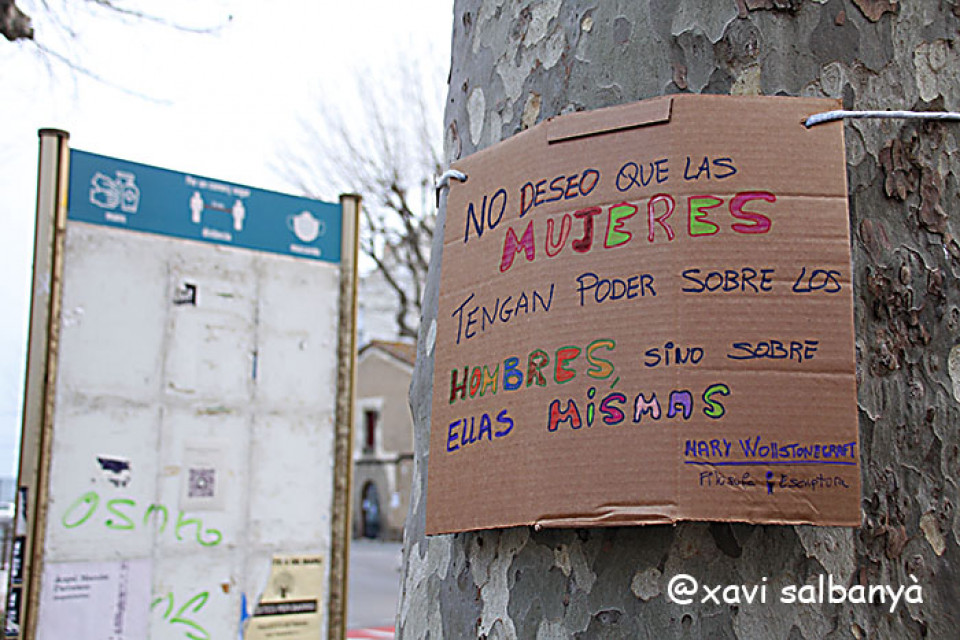 NO DESEO QUE LAS
MUJERES
TENGAN PODER SOBRE LOS
HOMBRES, SINO SOBRE
ELLAS MISMAS
MARY WOLLSTONECRAFT
Filosofa i Escriptora
@xavi salbanyà
osmo